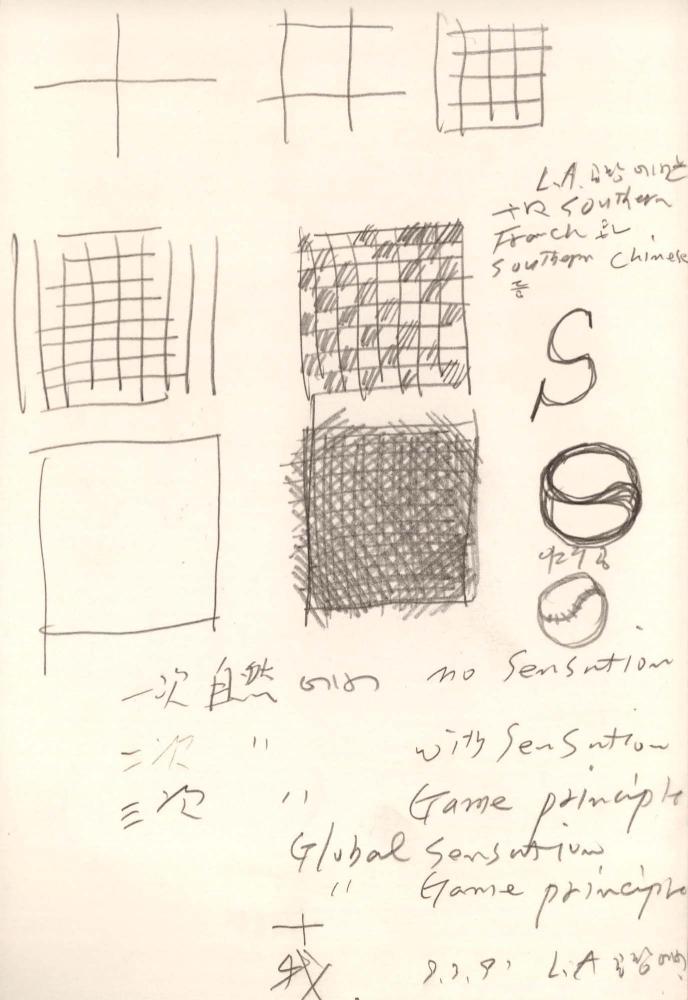 L.A. 공항에서
southern
French 와
southern Chinese
등
S
一次 自然 에서 no sensation
二次 〃 with sensation
三次 〃 Game principle
Global sensation
〃 Game principle
我 L.A 공항에서